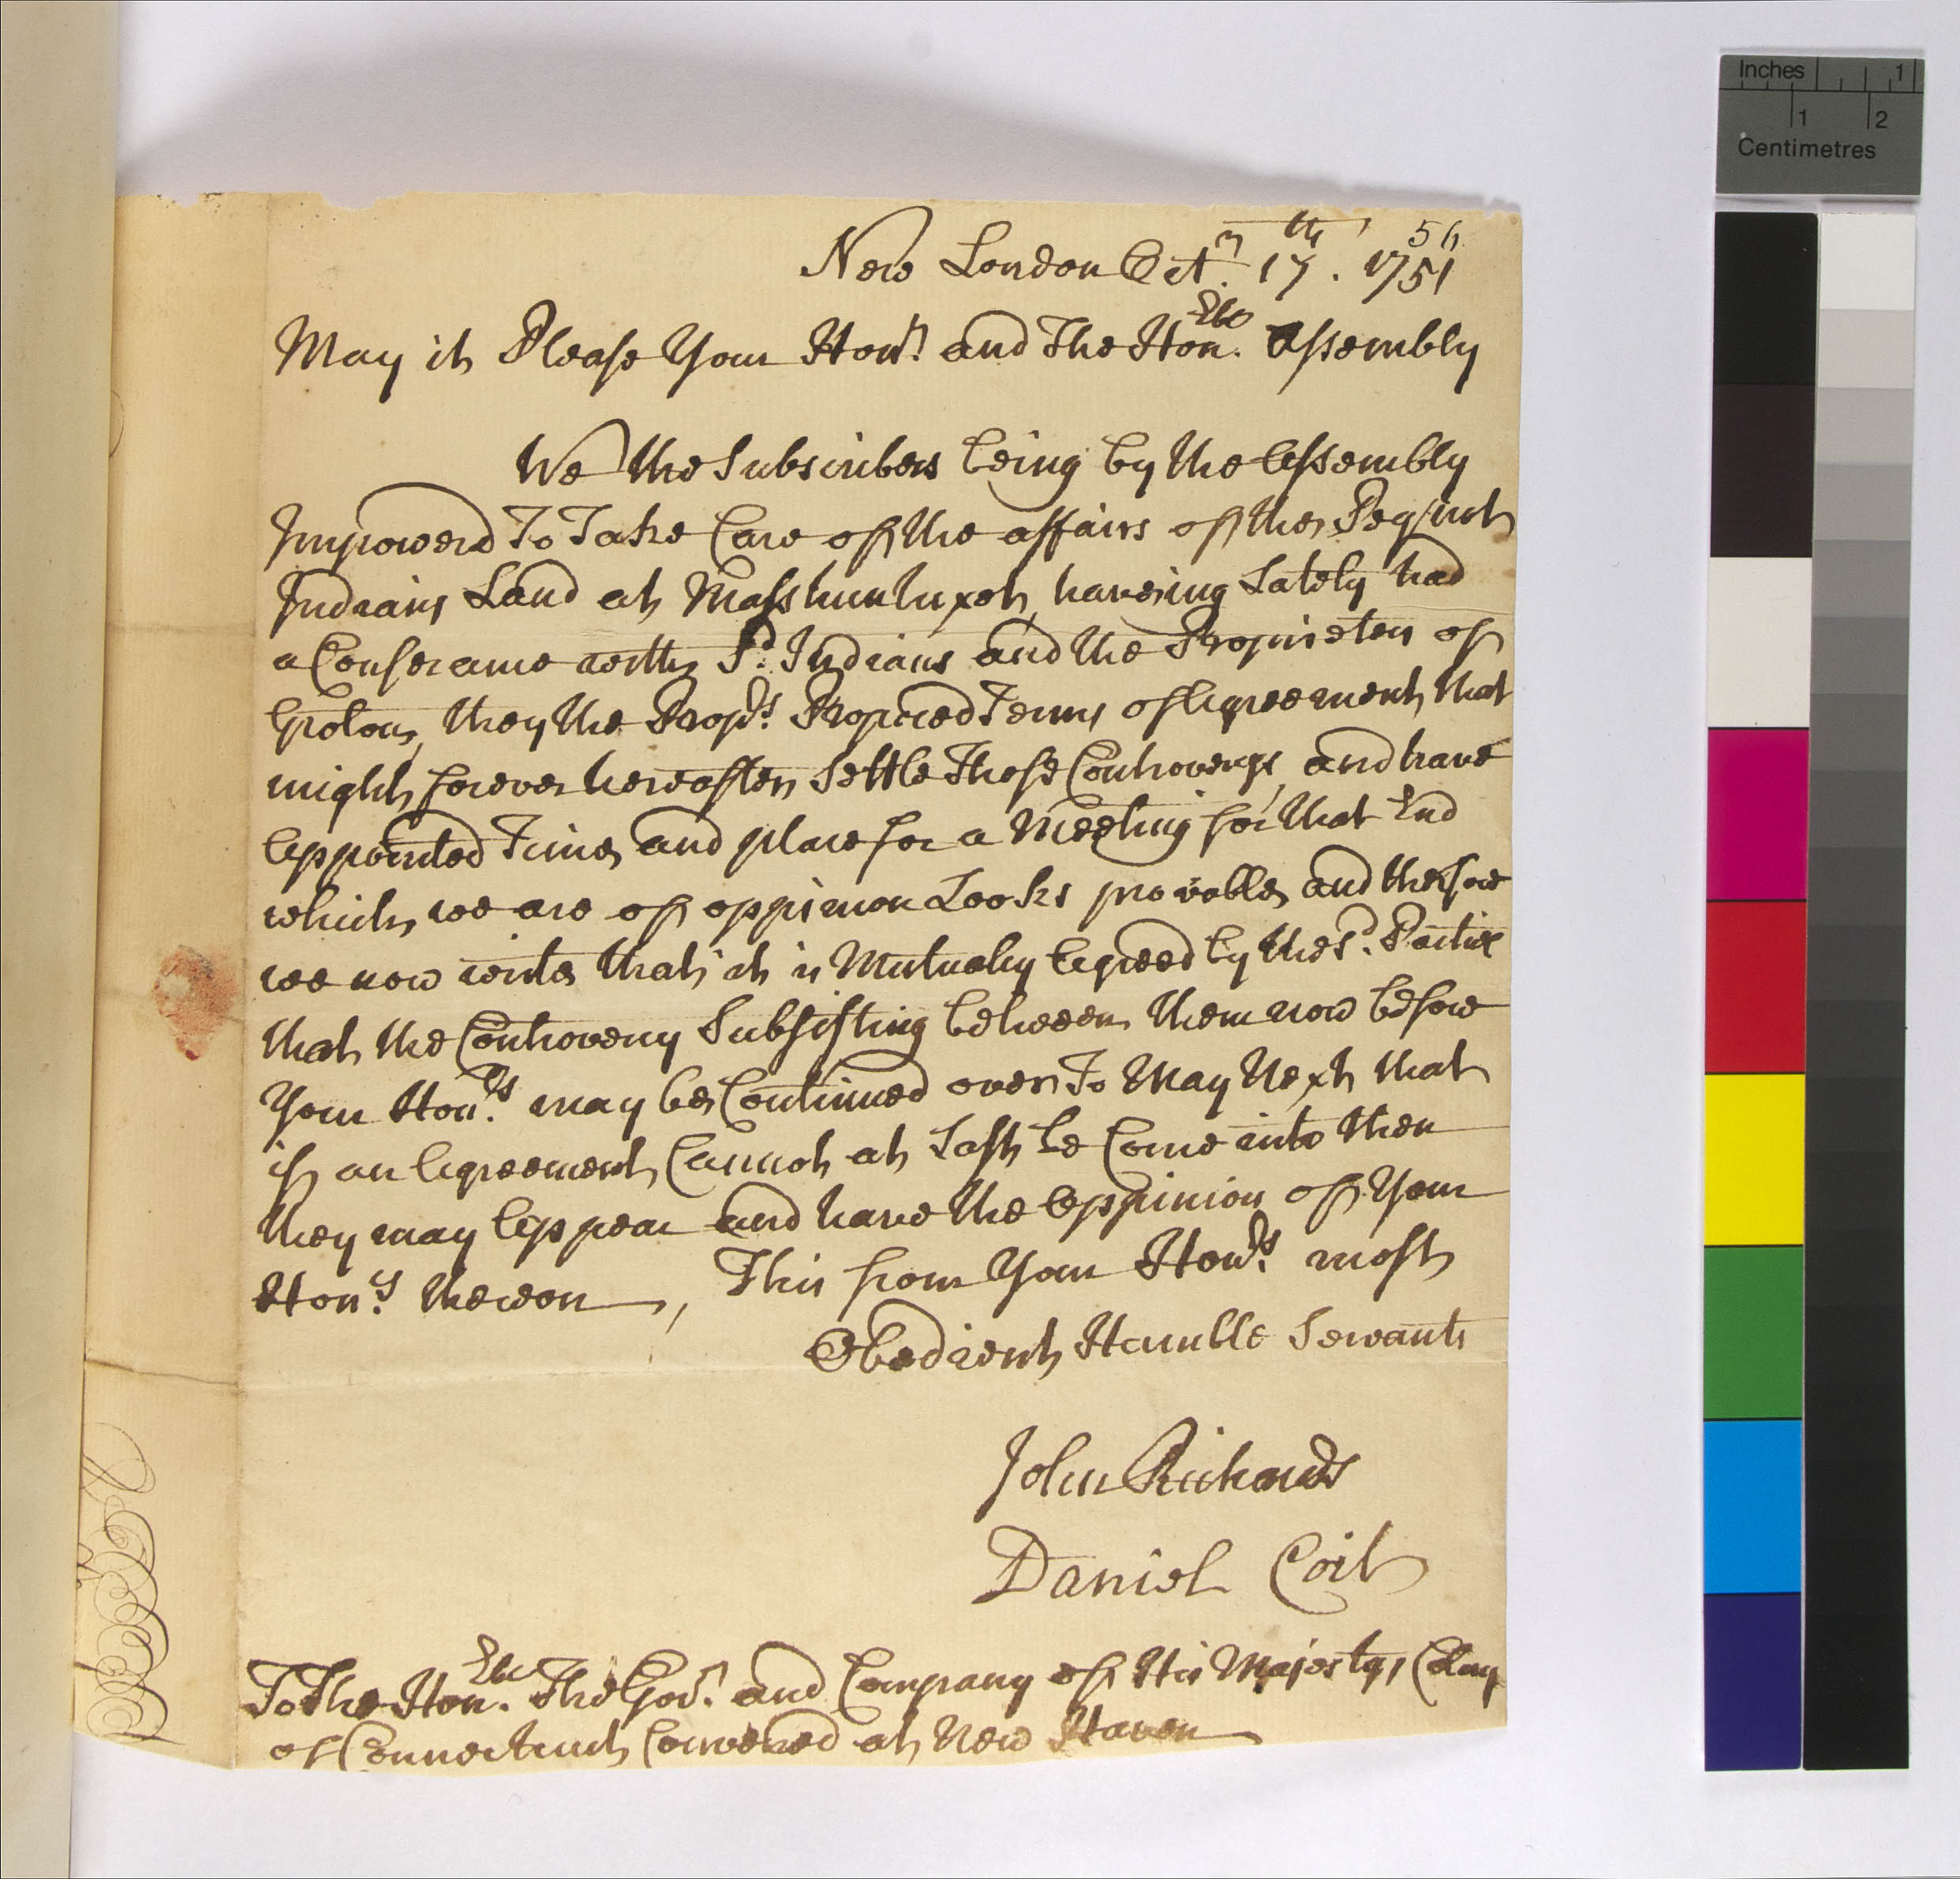 Inches 1
1 2
Centimetres
56
New London Octr. 17th. 1751
May it Please Your Honr. and The Honble. Assembly
We the Subscribers being by the Assembly
Impowerd To Take Care of the affairs of the Pequot
Indians Land at Masshuntuxet, haveing Lately had
a Conferance with Sd. Indians and the Proprietors of
Groton, they the Proprs. Proposed Terms of Agreement, that
might forever hereafter Settle Those Controversys, and have
Appointed Time and place for a Meeting for that End
which we are of oppinion Looks provable and therefore
we now write that it is Mutualy Agreed by the Sd. Parties
that the Controversy Subsisting between them now before
Your Honrs. may be Continued over To May Next that
if an Agreement Cannot at Last be Come into then
they may Appear and have the Oppinion of Your
Honrs. thereon, This from Your Honrs. most
Obedient Humble Servants
John Richards
Daniel Coit
To The Honble. The Govr. and Company of His Majestys Colony
of Connecticut Convened at New Haven